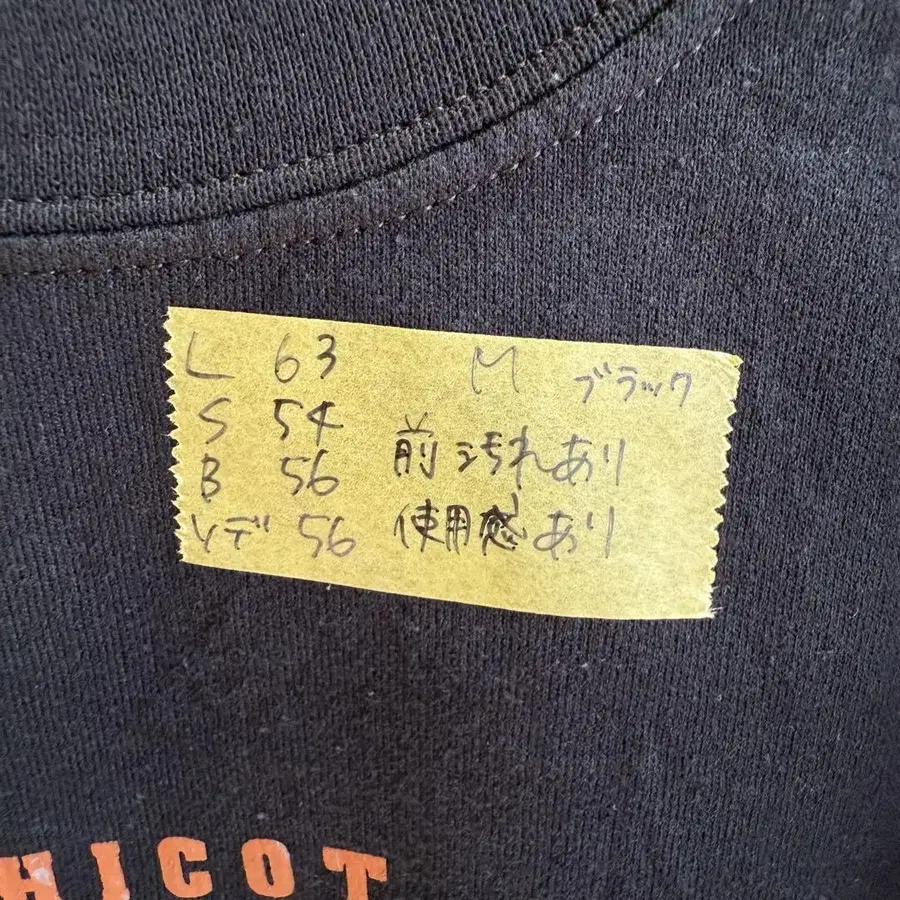 L 63 M ブラック
S 54 前 汚れあり
B 56
ソデ 56 使用感あり
HICOT